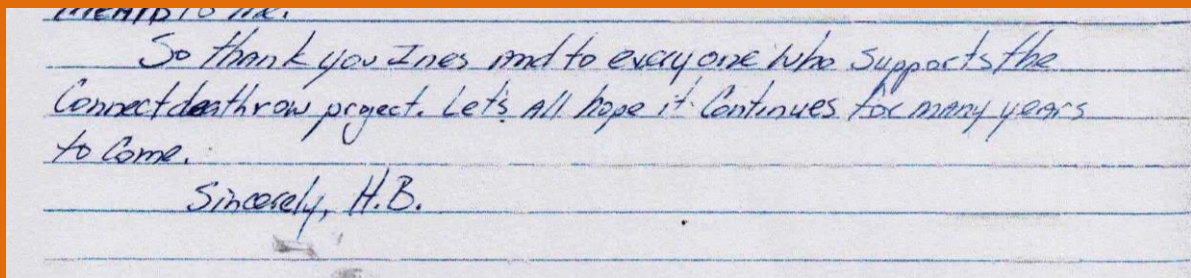 to me.
So thank you Ines and to everyone who supports the
Connectdeathrow project. Let's All hope it Continues for many years
to Come.
Sincerely, H.B.